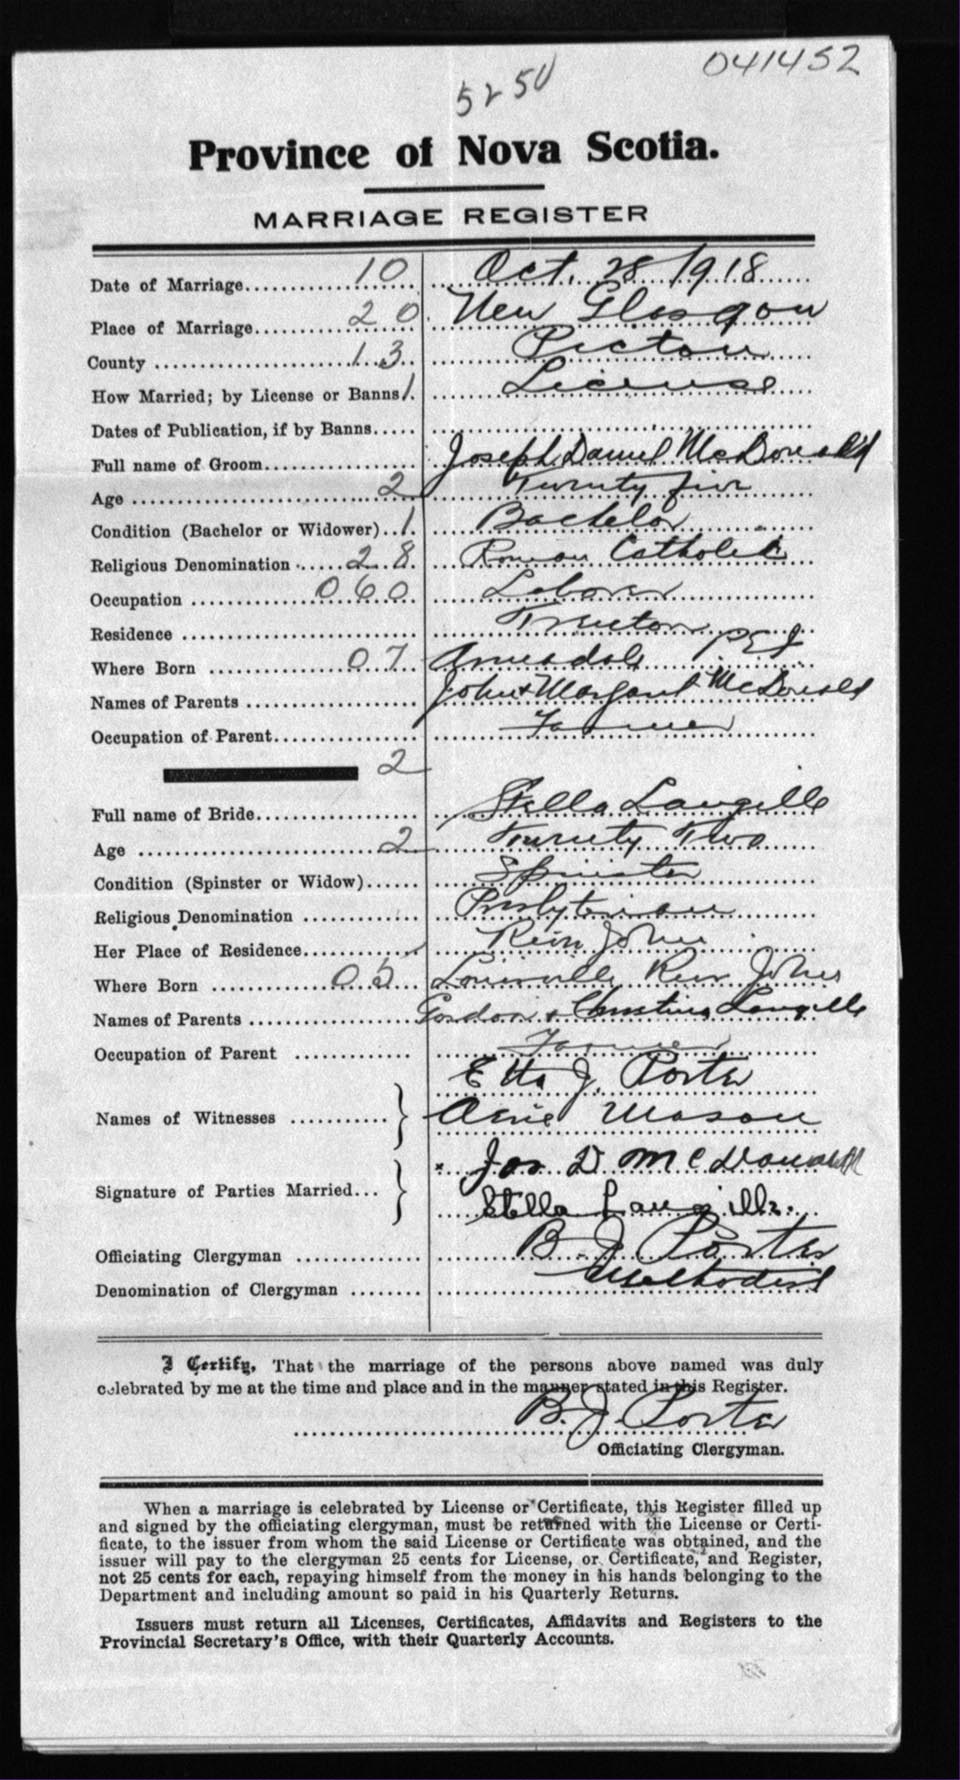 041452
5250
Province of Nova Scotia.
MARRIAGE REGISTER
Date of Marriage 10 Oct. 28 1918
Place of Marriage 20 New Glasgow
County 13 Pictou
How Married; by License or Banns 1 License
Dates of Publication, if by Banns
Full name of Groom Joseph Daniel McDonald
Age 2 Twenty five
Condition (Bachelor or Widower) 1 Bachelor
Religious Denomination 28 Roman Catholic
Occupation 060 Laborer
Residence Trenton
Where Born 07 Annandale PEI
Names of Parents John & Margaret McDonald
Occupation of Parent Farmer
2
Full name of Bride Stella Langille
Age 2 Twenty Two
Condition (Spinster or Widow) Spinster
Religious Denomination Presbyterian
Her Place of Residence River John
Where Born 05 Louisville River John
Names of Parents Gordon & Christina Langille
Occupation of Parent Farmer
Etta J. Porter
Names of Witnesses Mason
Jos D McDonald
Signature of Parties Married...
Stella Langille.
Officiating Clergyman B. J. Porter
Denomination of Clergyman Methodist
I Certify, That the marriage of the persons above named was duly
celebrated by me at the time and place and in the manner stated in this Register.
B. J. Porter
Officiating Clergyman.
When a marriage is celebrated by License or Certificate, this Register filled up
and signed by the officiating clergyman, must be returned with the License or Certi-
ficate, to the issuer from whom the said License or Certificate was obtained, and the
issuer will pay to the clergyman 25 cents for License, or Certificate, and Register,
not 25 cents for each, repaying himself from the money in his hands belonging to the
Department and including amount so paid in his Quarterly Returns.
Issuers must return all Licenses, Certificates, Affidavits and Registers to the
Provincial Secretary's Office, with their Quarterly Accounts.